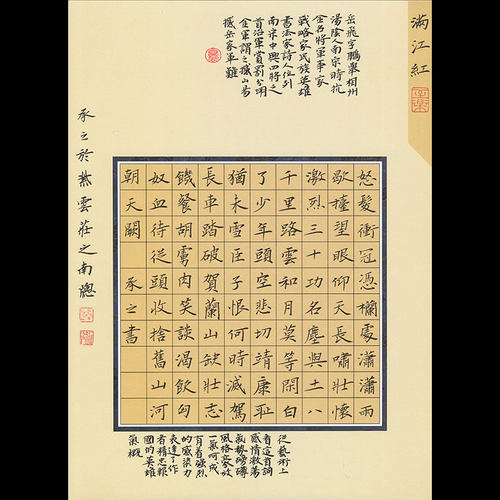 滿江紅
岳飛字鵬舉相州
湯陰人南宋時抗
金名將軍事家
戰略家民族英雄
書法家詩人位列
南宋中興四將之
首治軍賞罰分明
金軍謂之撼山易
撼岳家軍難
怒髮衝冠憑欄處瀟瀟雨
歇擡望眼仰天長嘯壯懷
激烈三十功名塵與土八
千里路雲和月莫等閑白
了少年頭空悲切靖康耻
猶未雪臣子恨何時滅駕
長車踏破賀蘭山缺壯志
饑餐胡虜肉笑談渴飲匈
奴血待從頭收拾舊山河
朝天闕 承之書
從藝術上
看這首詞
感情激蕩
氣勢磅礴
風格豪放
一氣呵成
有着強烈
的感染力
表達了作
者精忠報
國的英雄
氣概
承之於燕雲莊之南牕